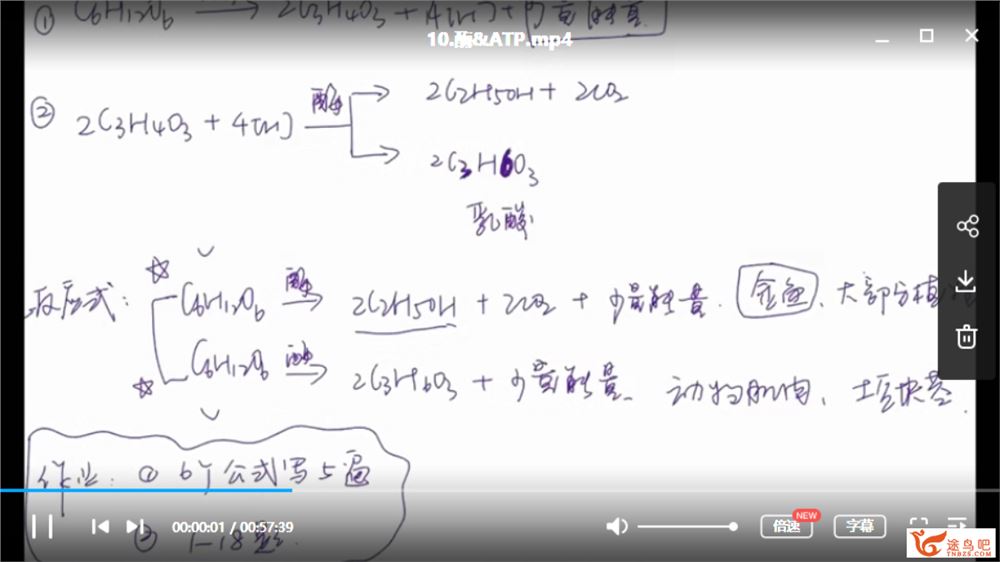 ① C6H12O6 → 2C3H4O3 + 4[H] + 少量能量
10.酶&ATP.mp4
② 2C3H4O3 + 4[H] 酶 → 2C2H5OH + 2CO2
→ 2C3H6O3
乳酸
反应式: C6H12O6 酶 → 2C2H5OH + 2CO2 + 少量能量. 金鱼、大部分植
C6H12O6 酶 → 2C3H6O3 + 少量能量、动物肌肉、块茎.
作业: ① 6个公式写5遍
② 1-18题.
00:00:01 / 00:57:39
倍速
NEW
字幕
途鸟吧
TNBZS.COM